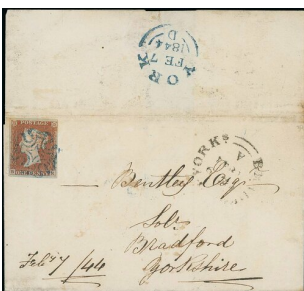 YORK
FE 7
1844
D
POSTAGE
YORKS
Bentley Esqr
Solr
Bradford
Yorkshire
Feby 7/44